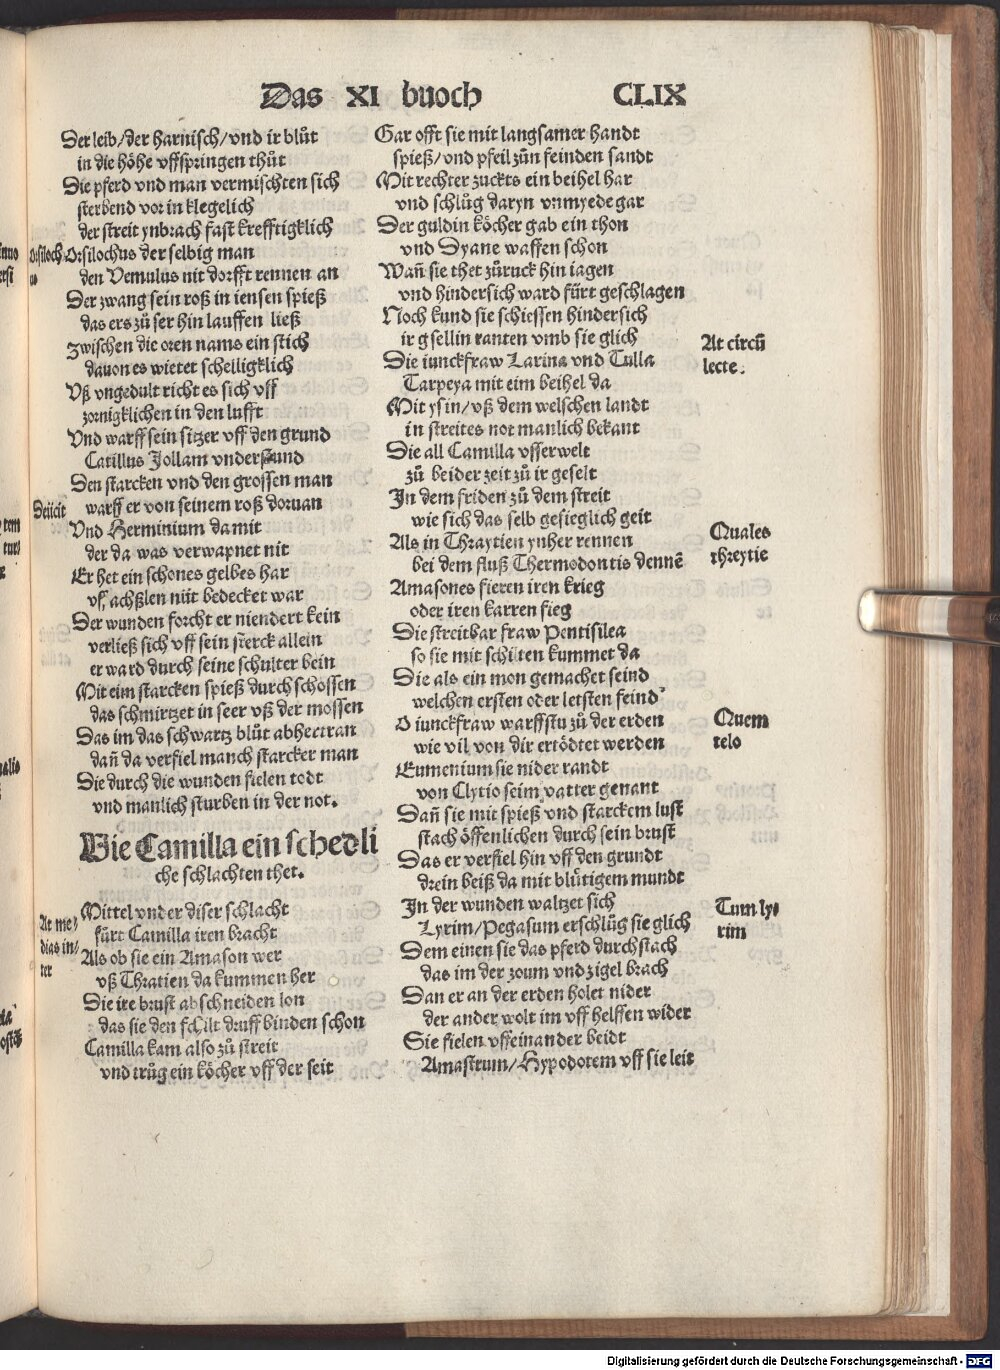 Das XI buoch CLIX
Der leib/der harnisch/vnd ir blůt
in die höhe vffspringen thůt
Die pferd vnd man vermischten sich
sterbend vor in klegelich
der streit ynbrach fast krefftigklich
Orsilochus der selbig man
den Vemulus nit dorfft rennen an
Der zwang sein roß in iensen spieß
das ers zů ser hin lauffen ließ
zwischen die oren nams ein stich
dauon es wietet schelligklich
Vß vngedult richt es sich vff
zornigklichen in den lufft
Vnd warff sein sitzer vff den grund
Catillus Jollam vnderstund
Den starcken vnd den grossen man
warff er von seinem roß doruan
Vnd Herminium da mit
der da was verwapnet nit
Er het ein schones gelbes har
vff achßlen nüt bedecket war
Der wunden forcht er niendert kein
verließ sich vff sein sterck allein
er ward durch seine schulter bein
Mit eim starcken spieß durch schossen
das schmirtzet in seer vß der mossen
Das im das schwartz blůt abher ran
dañ da verfiel manch starcker man
Die durch die wunden fielen todt
vnd manlich sturben in der not.
Wie Camilla ein schedli
che schlachten thet.
Mittel vnder diser schlacht
fürt Camilla iren bracht
Als ob sie ein Amason wer
vß Thratien da kummen her
Die ire brust abschneiden lon
das sie den schilt druff binden schon
Camilla kam also zů streit
vnd trůg ein köcher vff der seit
Orsiloch
us
Deiicit
At me-
dias in-
ter
Gar offt sie mit langsamer handt
spieß/vnd pfeil zůn feinden sandt
Mit rechter zuckts ein beihel har
vnd schlůg daryn vnmyede gar
Der guldin köcher gab ein thon
vnd Dyane waffen schon
Wañ sie thet zůruck hin iagen
vnd hindersich ward fürt geschlagen
Noch kund sie schiessen hindersich
ir gsellin ranten vmb sie glich
Die iunckfraw Larina vnd Tulla
Tarpeya mit eim beihel da
Mit ysin/vß dem welschen landt
in streites not manlich bekant
Die all Camilla vsserwelt
zů beider zeit zů ir geselt
In dem friden zů dem streit
wie sich das selb gesieglich geit
Als in Thraytien ynher rennen
bei dem fluß Thermodontis dennē
Amasones fieren iren krieg
oder iren karren sieg
Die streitbar fraw Pentisilea
so sie mit schilten kummet da
Die als ein mon gemachet seind
welchen ersten oder letsten feind
O iunckfraw warffstu zů der erden
wie vil von dir ertödtet werden
Eumenium sie nider randt
von Clytio seim vatter genant
Dañ sie mit spieß vnd starckem lust
stach öffenlichen durch sein brust
Das er verfiel hin vff den grundt
drein beiß da mit blůtigem mundt
In der wunden waltzet sich
Lyrim/Pegasum erschlůg sie glich
Dem einen sie das pferd durchstach
das im der zoum vnd zigel brach
Dan er an der erden holet nider
der ander wolt im vff helffen wider
Sie fielen vffeinander beidt
Amastrum/Hypodotem vff sie leit
At circū
lecte.
Quales
threytie
Quem
telo
Tum ly-
rim
Digitalisierung gefördert durch die Deutsche Forschungsgemeinschaft - DFG